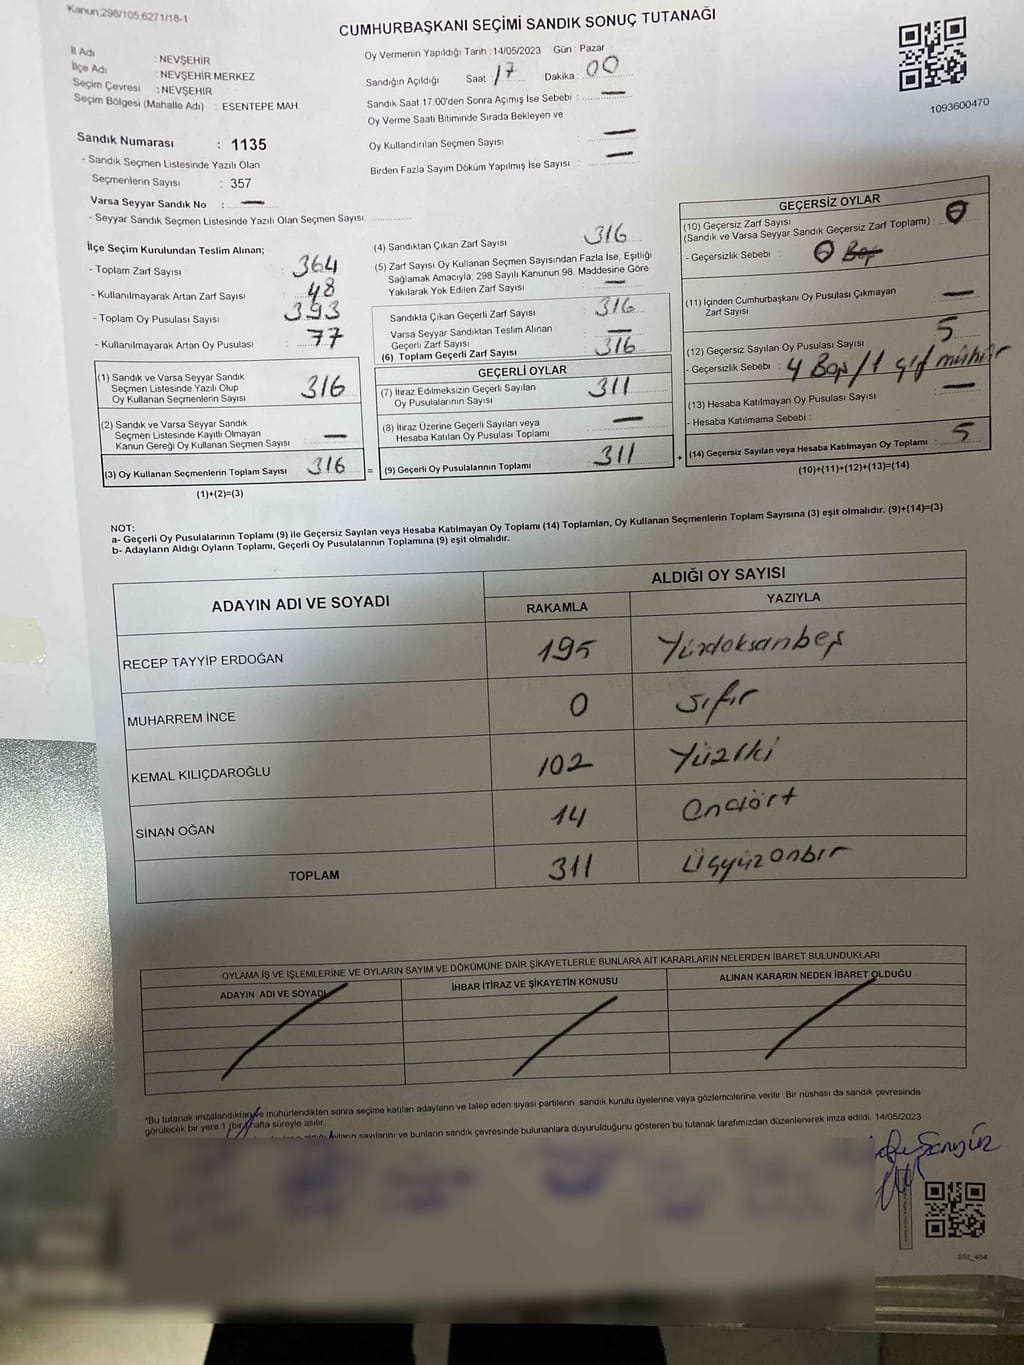 Kanun;298/105;6271/18-1
CUMHURBAŞKANI SEÇİMİ SANDIK SONUÇ TUTANAĞI
1093600470
İl Adı : NEVŞEHİR
İlçe Adı : NEVŞEHİR MERKEZ
Seçim Çevresi : NEVŞEHİR
Seçim Bölgesi (Mahalle Adı) : ESENTEPE MAH.
Sandık Numarası : 1135
- Sandık Seçmen Listesinde Yazılı Olan
Seçmenlerin Sayısı : 357
Varsa Seyyar Sandık No : —
- Seyyar Sandık Seçmen Listesinde Yazılı Olan Seçmen Sayısı
Oy Vermenin Yapıldığı Tarih : 14/05/2023 Gün : Pazar
Sandığın Açıldığı Saat 17 Dakika : 00
Sandık Saat 17:00'den Sonra Açımış İse Sebebi : —
Oy Verme Saati Bitiminde Sırada Bekleyen ve
Oy Kullandırılan Seçmen Sayısı : —
Birden Fazla Sayım Döküm Yapılmış İse Sayısı : —
İlçe Seçim Kurulundan Teslim Alınan;
- Toplam Zarf Sayısı : 364
- Kullanılmayarak Artan Zarf Sayısı : 48
- Toplam Oy Pusulası Sayısı : 393
- Kullanılmayarak Artan Oy Pusulası : 77
(1) Sandık ve Varsa Seyyar Sandık
Seçmen Listesinde Yazılı Olup
Oy Kullanan Seçmenlerin Sayısı : 316
(2) Sandık ve Varsa Seyyar Sandık
Seçmen Listesinde Kayıtlı Olmayan
Kanun Gereği Oy Kullanan Seçmen Sayısı : —
(3) Oy Kullanan Seçmenlerin Toplam Sayısı : 316
(1)+(2)=(3)
(4) Sandıktan Çıkan Zarf Sayısı : 316
(5) Zarf Sayısı Oy Kullanan Seçmen Sayısından Fazla İse, Eşitliği
Sağlamak Amacıyla; 298 Sayılı Kanunun 98. Maddesine Göre
Yakılarak Yok Edilen Zarf Sayısı : —
Sandıkta Çıkan Geçerli Zarf Sayısı : 316
Varsa Seyyar Sandıktan Teslim Alınan
Geçerli Zarf Sayısı : —
(6) Toplam Geçerli Zarf Sayısı : 316
GEÇERLİ OYLAR
(7) İtiraz Edilmeksizin Geçerli Sayılan
Oy Pusulalarının Sayısı : 311
(8) İtiraz Üzerine Geçerli Sayılan veya
Hesaba Katılan Oy Pusulası Toplamı : —
= (9) Geçerli Oy Pusulalarının Toplamı : 311
GEÇERSİZ OYLAR
(10) Geçersiz Zarf Sayısı
(Sandık ve Varsa Seyyar Sandık Geçersiz Zarf Toplamı) : 0
- Geçersizlik Sebebi : 0 Boş
(11) İçinden Cumhurbaşkanı Oy Pusulası Çıkmayan
Zarf Sayısı : —
(12) Geçersiz Sayılan Oy Pusulası Sayısı : 5
- Geçersizlik Sebebi : 4 Boş / 1 çif mühür
(13) Hesaba Katılmayan Oy Pusulası Sayısı : —
- Hesaba Katılmama Sebebi :
+ (14) Geçersiz Sayılan veya Hesaba Katılmayan Oy Toplamı : 5
(10)+(11)+(12)+(13)=(14)
NOT:
a- Geçerli Oy Pusulalarının Toplamı (9) ile Geçersiz Sayılan veya Hesaba Katılmayan Oy Toplamı (14) Toplamları, Oy Kullanan Seçmenlerin Toplam Sayısına (3) eşit olmalıdır. (9)+(14)=(3)
b- Adayların Aldığı Oyların Toplamı, Geçerli Oy Pusulalarının Toplamına (9) eşit olmalıdır.
ADAYIN ADI VE SOYADI ALDIĞI OY SAYISI
RAKAMLA YAZIYLA
RECEP TAYYİP ERDOĞAN 195 Yüzdoksanbeş
MUHARREM İNCE 0 Sıfır
KEMAL KILIÇDAROĞLU 102 Yüziki
SİNAN OĞAN 14 Ondört
TOPLAM 311 Üçyüzonbir
OYLAMA İŞ VE İŞLEMLERİNE VE OYLARIN SAYIM VE DÖKÜMÜNE DAİR ŞİKAYETLERLE BUNLARA AİT KARARLARIN NELERDEN İBARET BULUNDUKLARI
ADAYIN ADI VE SOYADI İHBAR İTİRAZ VE ŞİKAYETİN KONUSU ALINAN KARARIN NEDEN İBARET OLDUĞU
*Bu tutanak imzalandıktan ve mühürlendikten sonra seçime katılan adayların ve talep eden siyasi partilerin sandık kurulu üyelerine veya gözlemcilerine verilir. Bir nüshası da sandık çevresinde
görülecek bir yere 1 (bir) hafta süreyle asılır.
sayılarını ve bunların sandık çevresinde bulunanlara duyurulduğunu gösteren bu tutanak tarafımızdan düzenlenerek imza edildi. 14/05/2023
SSI_404